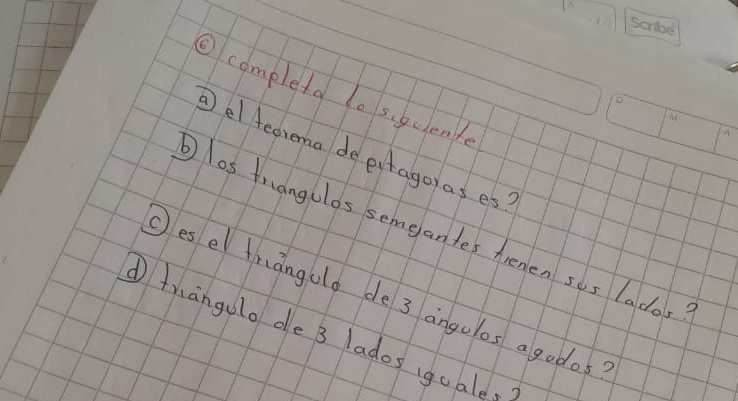 Scribe
D M A
⑥ completa lo siguiente
ⓐ el teorema de pitagoras es?
ⓑ los triangulos semejantes tienen sus lados?
ⓒ es el triángulo de 3 ángulos agudos?
ⓓ triángulo de 3 lados iguales?